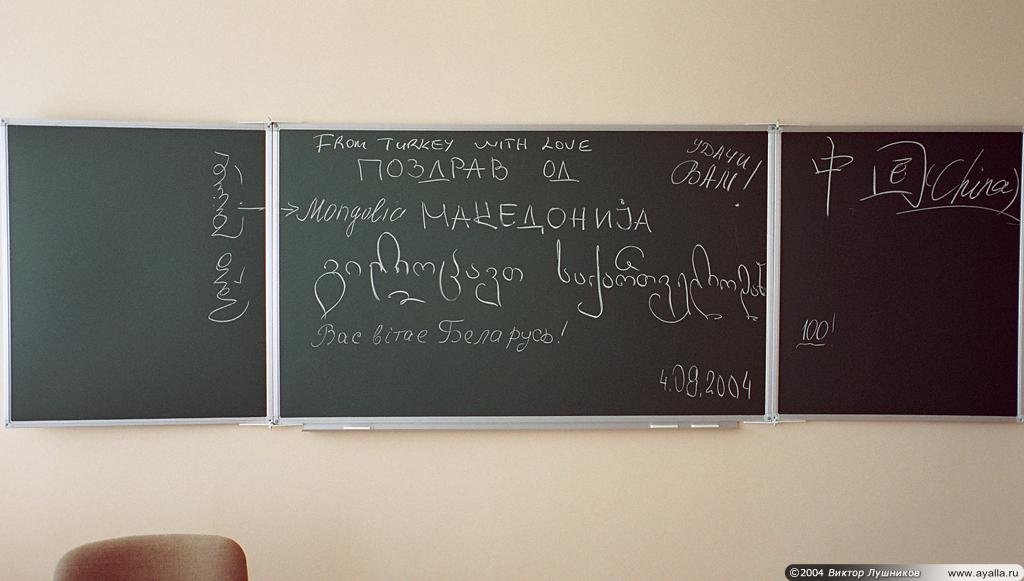 FROM TURKEY WITH LOVE
ПОЗДРАВ ОД
УДАЧИ
ВАМ!
Mongolia МАКЕДОНИЈА
გილოცავთ საქართველოდან
Вас вітае Беларусь!
4.09.2004
中国 (China)
100!
©2004 Виктор Лушников www.ayalla.ru